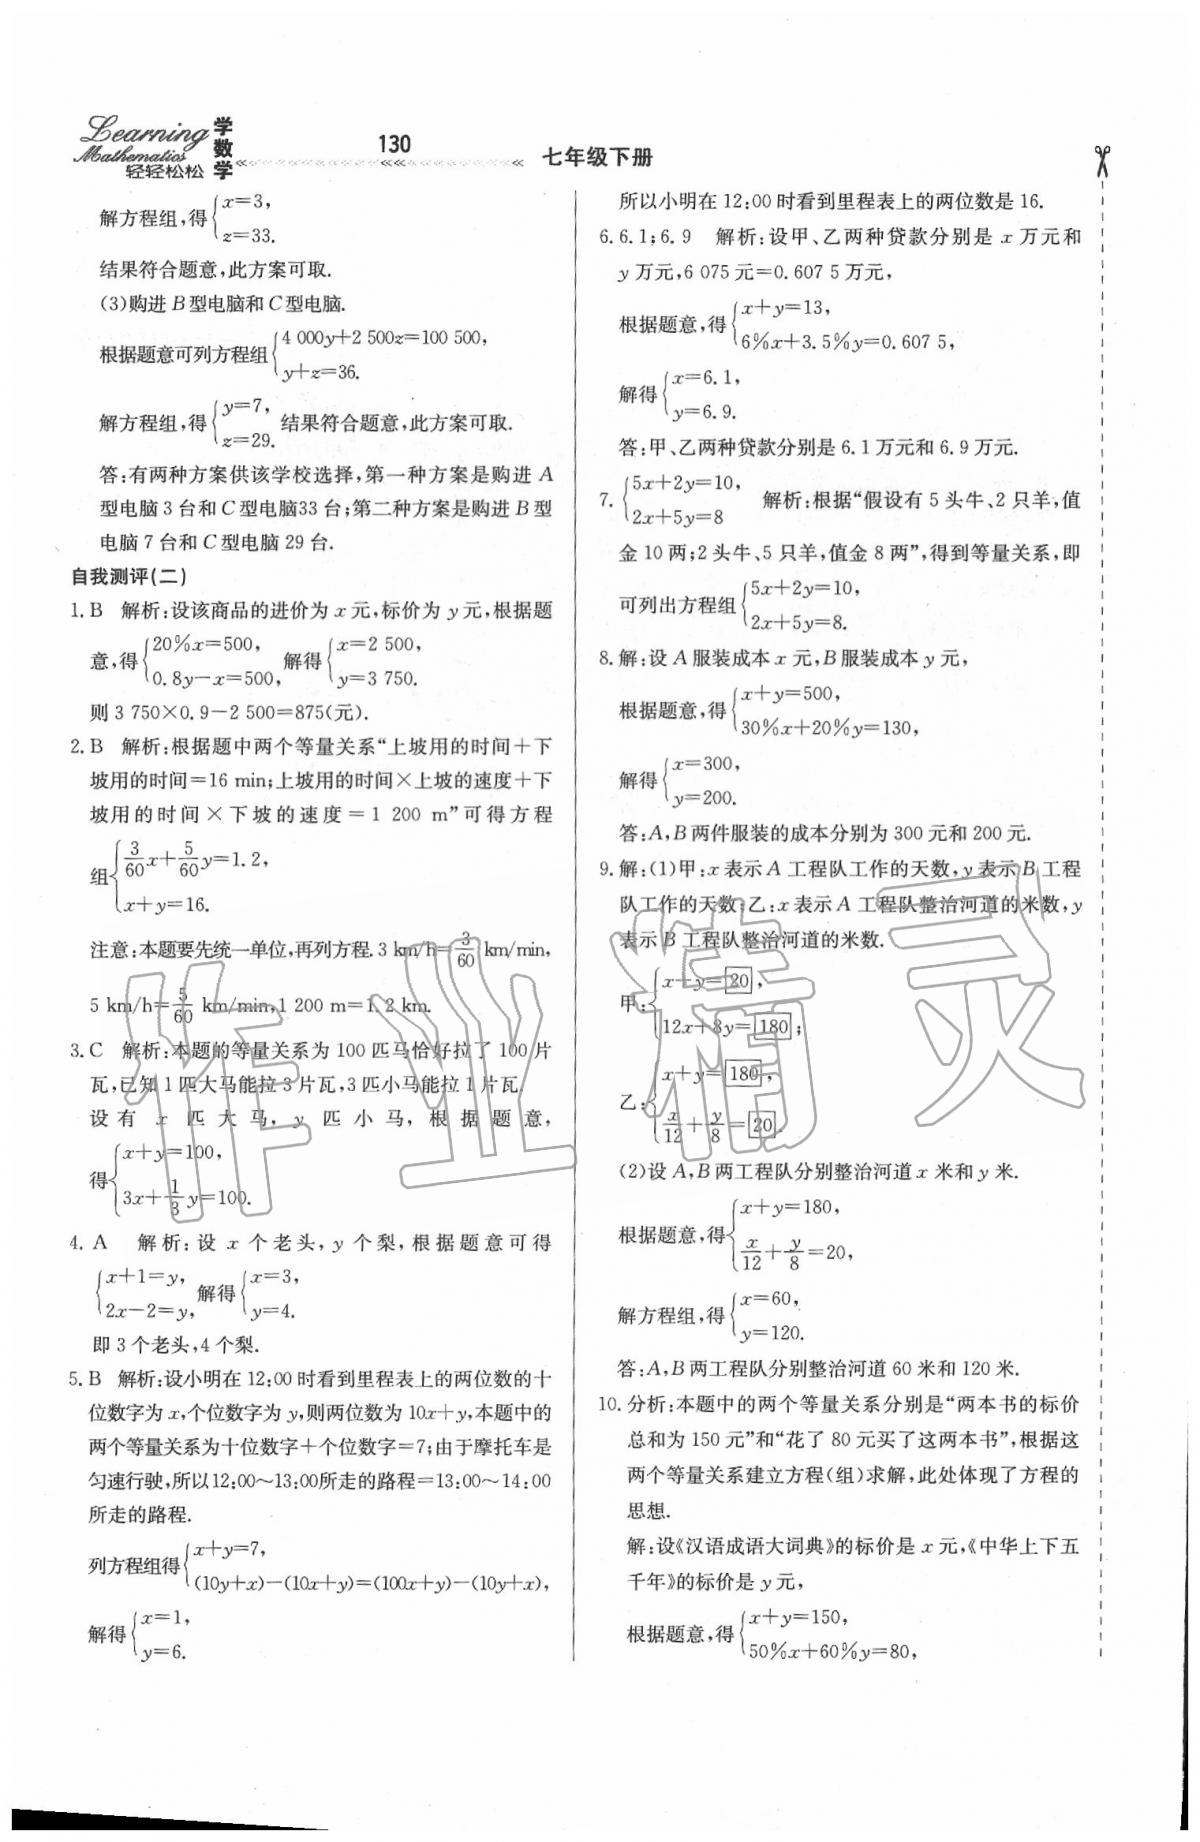 Learning
Mathematics
轻轻松松
学数学
130
七年级下册
解方程组,得{x=3,
z=33.
结果符合题意,此方案可取.
(3)购进B型电脑和C型电脑.
根据题意可列方程组{4 000y+2 500z=100 500,
y+z=36.
解方程组,得{y=7,
z=29. 结果符合题意,此方案可取.
答:有两种方案供该学校选择,第一种方案是购进A
型电脑3台和C型电脑33台;第二种方案是购进B型
电脑7台和C型电脑29台.
自我测评(二)
1.B 解析:设该商品的进价为x元,标价为y元,根据题
意,得{20%x=500,
0.8y-x=500, 解得{x=2 500,
y=3 750.
则3 750×0.9-2 500=875(元).
2.B 解析:根据题中两个等量关系“上坡用的时间+下
坡用的时间=16 min;上坡用的时间×上坡的速度+下
坡用的时间×下坡的速度=1 200 m”可得方程
组{3/60x+5/60y=1.2,
x+y=16.
注意:本题要先统一单位,再列方程.3 km/h=3/60 km/min,
5 km/h=5/60 km/min,1 200 m=1.2 km.
3.C 解析:本题的等量关系为100匹马恰好拉了100片
瓦,已知1匹大马能拉3片瓦,3匹小马能拉1片瓦.
设有x匹大马,y匹小马,根据题意,
得{x+y=100,
3x+1/3y=100.
4.A 解析:设x个老头,y个梨,根据题意可得
{x+1=y,
2x-2=y, 解得{x=3,
y=4.
即3个老头,4个梨.
5.B 解析:设小明在12:00时看到里程表上的两位数的十
位数字为x,个位数字为y,则两位数为10x+y,本题中的
两个等量关系为十位数字+个位数字=7;由于摩托车是
匀速行驶,所以12:00~13:00所走的路程=13:00~14:00
所走的路程.
列方程组得{x+y=7,
(10y+x)-(10x+y)=(100x+y)-(10y+x),
解得{x=1,
y=6.
所以小明在12:00时看到里程表上的两位数是16.
6.6.1;6.9 解析:设甲、乙两种贷款分别是x万元和
y万元,6 075元=0.607 5万元,
根据题意,得{x+y=13,
6%x+3.5%y=0.607 5,
解得{x=6.1,
y=6.9.
答:甲、乙两种贷款分别是6.1万元和6.9万元.
7.{5x+2y=10,
2x+5y=8 解析:根据“假设有5头牛、2只羊,值
金10两;2头牛、5只羊,值金8两”,得到等量关系,即
可列出方程组{5x+2y=10,
2x+5y=8.
8.解:设A服装成本x元,B服装成本y元,
根据题意,得{x+y=500,
30%x+20%y=130,
解得{x=300,
y=200.
答:A,B两件服装的成本分别为300元和200元.
9.解:(1)甲:x表示A工程队工作的天数,y表示B工程
队工作的天数;乙:x表示A工程队整治河道的米数,y
表示B工程队整治河道的米数.
甲:{x+y=20,
12x+8y=180;
乙:{x+y=180,
x/12+y/8=20.
(2)设A,B两工程队分别整治河道x米和y米.
根据题意,得{x+y=180,
x/12+y/8=20,
解方程组,得{x=60,
y=120.
答:A,B两工程队分别整治河道60米和120米.
10.分析:本题中的两个等量关系分别是“两本书的标价
总和为150元”和“花了80元买了这两本书”,根据这
两个等量关系建立方程(组)求解,此处体现了方程的
思想.
解:设《汉语成语大词典》的标价是x元,《中华上下五
千年》的标价是y元,
根据题意,得{x+y=150,
50%x+60%y=80,
作业精灵